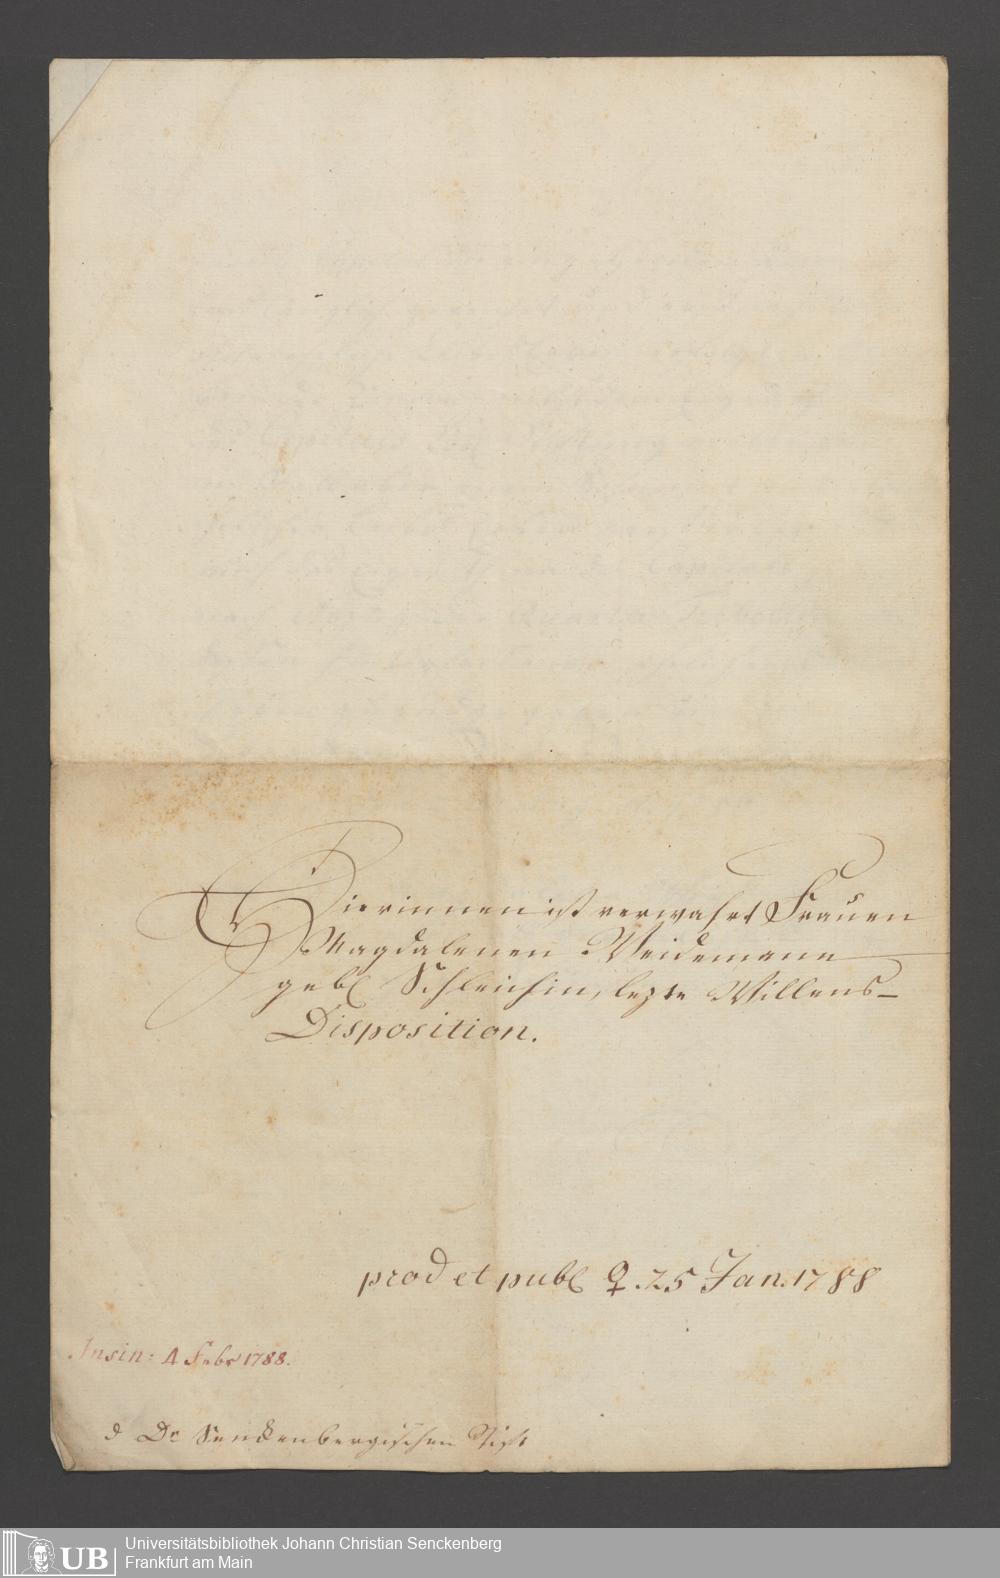 Hierinnen ist verwahrt Frauen
Magdalenen Weidemann
gebl Schleichin, lezte Willens-
Disposition.
prod et publ ♀ 25 Jan. 1788
Insin: 4 Febr 1788.
d Dr Senckenbergischen Stift
UB
Universitätsbibliothek Johann Christian Senckenberg
Frankfurt am Main